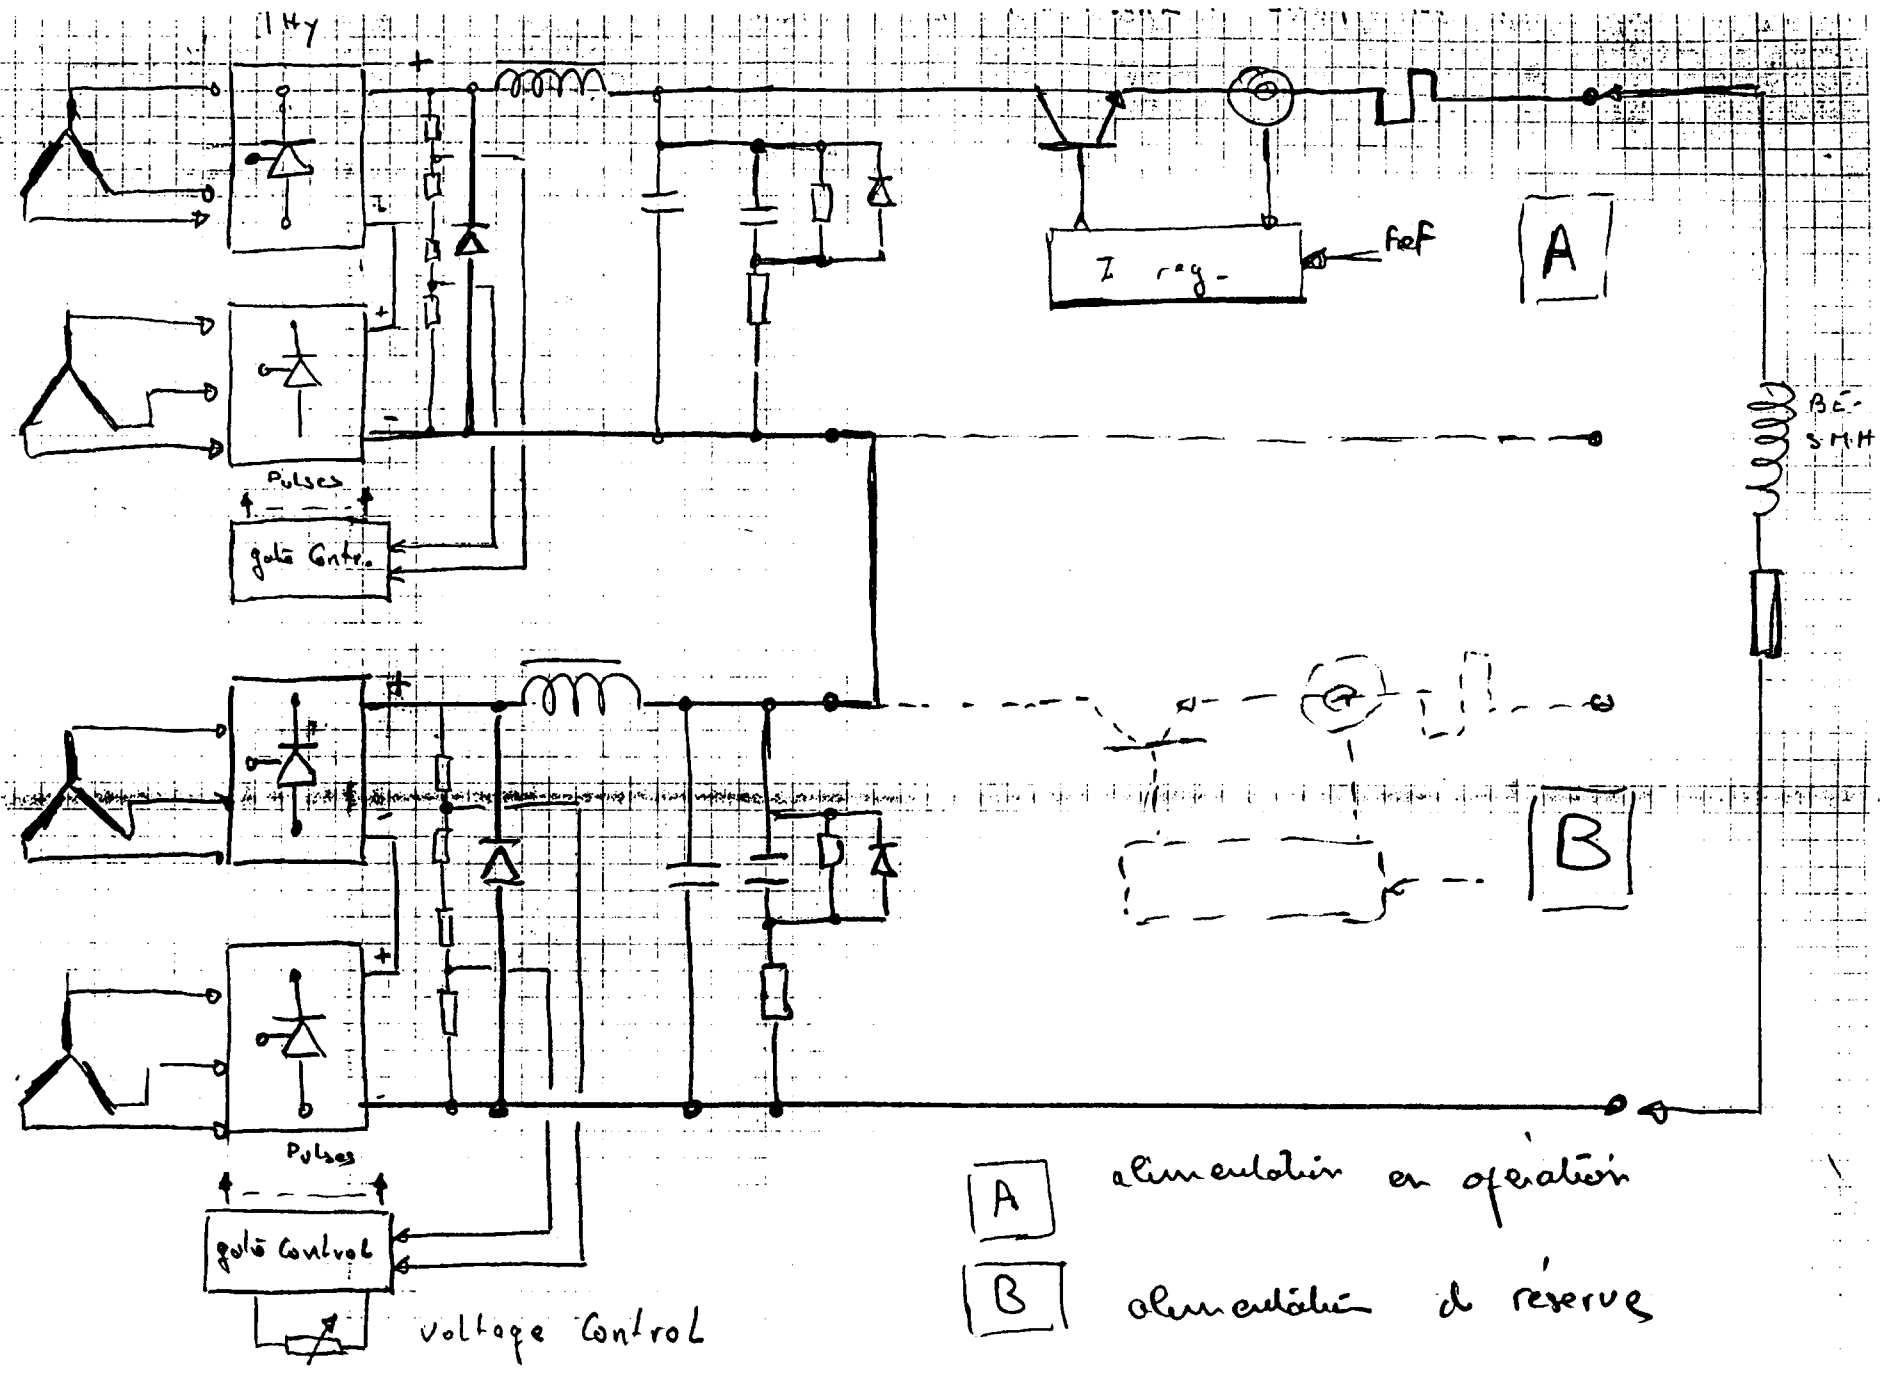 1 Hy
+
-
+
-
I reg-
A
Pulses
gate Contr.
+
-
+
-
B
Pulses
gate Control
voltage Control
A alimentation en opération
B alimentation de réserve